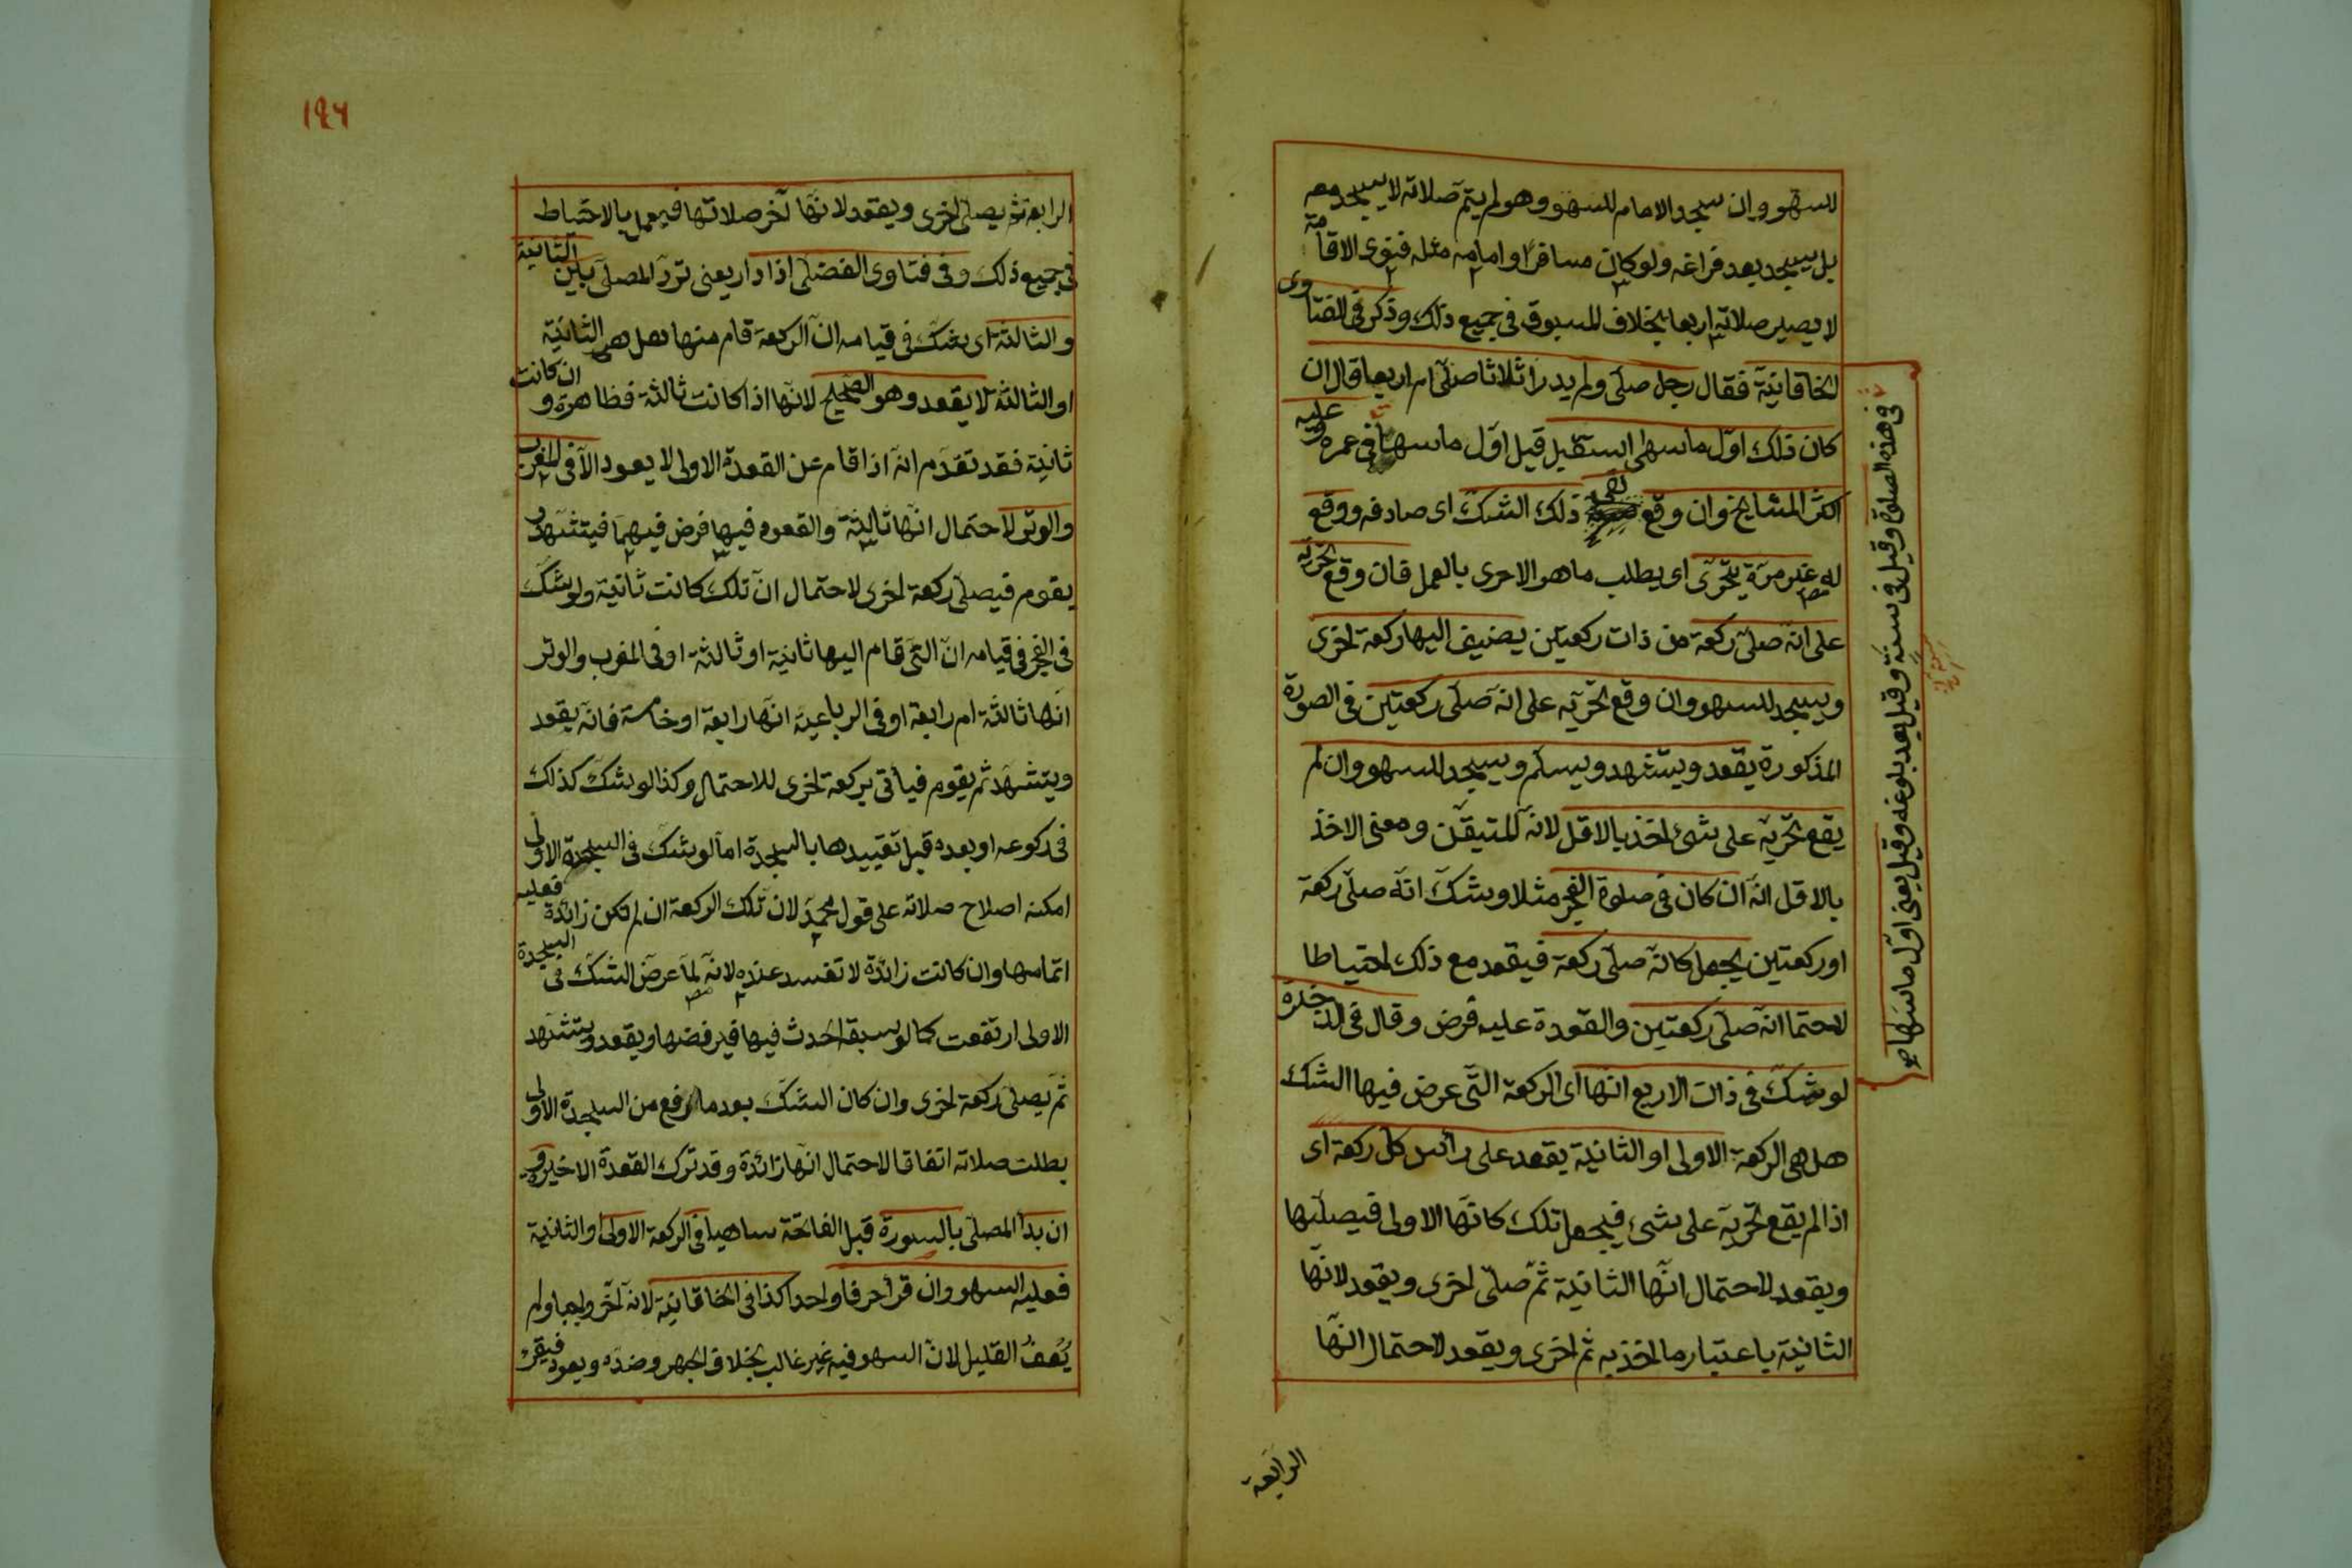 للسهو وان سجد الامام للسهو وهو لم يتم صلاته لا يسجد معه
بل يسجد بعد فراغه ولو كان مسافرا وامامه مثله فنوى الاقامة
لا يصير صلاته اربعا بخلاف المسبوق في جميع ذلك وذكر في الفتاوى
الخاقانية فقال رجل صلى ولم يدر اثلاثا صلى ام اربعا قال ان
كان ذلك اول ما سهى استقبل قيل اول ما سها في عمره وعليه
اكثر المشايخ وان وقع ذلك الشك اى صادفه ووقع
له غير مرة يتحرى اى يطلب ما هو الاحرى بالعمل فان وقع تحريه
على انه صلى ركعة من ذات ركعتين يضيف اليها ركعة اخرى
ويسجد للسهو وان وقع تحريه على انه صلى ركعتين في الصورة
المذكورة يقعد ويتشهد ويسلم ويسجد للسهو وان لم
يقع تحريه على شئ اخذ بالاقل لانه المتيقن ومعنى الاخذ
بالاقل انه ان كان في صلوة الفجر مثلا وشك انه صلى ركعة
او ركعتين يجعل كانه صلى ركعة فيقعد مع ذلك احتياطا
لاحتما انه صلى ركعتين والقعدة عليه فرض وقال في الذخيرة
لو شك في ذات الاربع انها اى الركعة التي عرض فيها الشك
هل هى الركعة الاولى او الثانية يقعد على رأس كل ركعة اى
اذا لم يقع تحريه على شئ فيجعل تلك كانها الاولى فيصليها
ويقعد لاحتمال انها الثانية ثم صلى اخرى ويقعد لانها
الثانية باعتبار ما اخذ به ثم اخرى ويقعد لاحتمال انها
الرابعة
في هذه الصلوة وقيل في سنة وقيل بعد بلوغه وقيل يعنى اول ما سها صح
١٩٦
الرابعة ثم يصلى اخرى ويقعد لانها آخر صلاتها فيعمل بالاحتياط
في جميع ذلك وفي فتاوى الفضلى اذا دار يعنى تردد المصلى بين الثانية
والثالثة اى يشك في قيامه ان الركعة قام منها هل هى الثانية
او الثالثة لا يقعد وهو الصحيح لانها اذا كانت ثالثة فظاهرة وان كانت
ثانية فقد تقدم انه اذا قام عن القعدة الاولى لا يعود الا في المغرب
والوتر لاحتمال انها ثالثة والقعود فيها فرض فيهما فيتشهد و
يقوم فيصلى ركعة اخرى لاحتمال ان تلك كانت ثانية ولو شك
في الفجر في قيامه ان التي قام اليها ثانية او ثالثة او في المغرب والوتر
انها ثالثة ام رابعة او في الرباعية انها رابعة او خامسة فانه يقعد
ويتشهد ثم يقوم فيأتى بركعة اخرى للاحتمال وكذا لو شك كذلك
في ركوعه او بعده قبل تقييدها بالسجدة اما لو شك في السجدة الاولى
امكنه اصلاح صلاته على قول محمد لان تلك الركعة ان لم تكن زائدة فعليه
اتمامها وان كانت زائدة لا تفسد عنده لانه لما عرض الشك في السجدة
الاولى ارتفعت كما لو سبقه الحدث فيها فيرفضها ويقعد ويتشهد
ثم يصلى ركعة اخرى وان كان الشك بعد ما رفع من السجدة الاولى
بطلت صلاته اتفاقا لاحتمال انها زائدة وقد ترك القعدة الاخيرة و
ان بدأ المصلى بالسورة قبل الفاتحة ساهيا في الركعة الاولى او الثانية
فعليه السهو وان قرأ حرفا واحدا كذا في الخاقانية لانه آخر واجبا ولم
يعف القليل لان السهو فيه غير غالب بخلاف الجهر وضده ويعود فيقرء